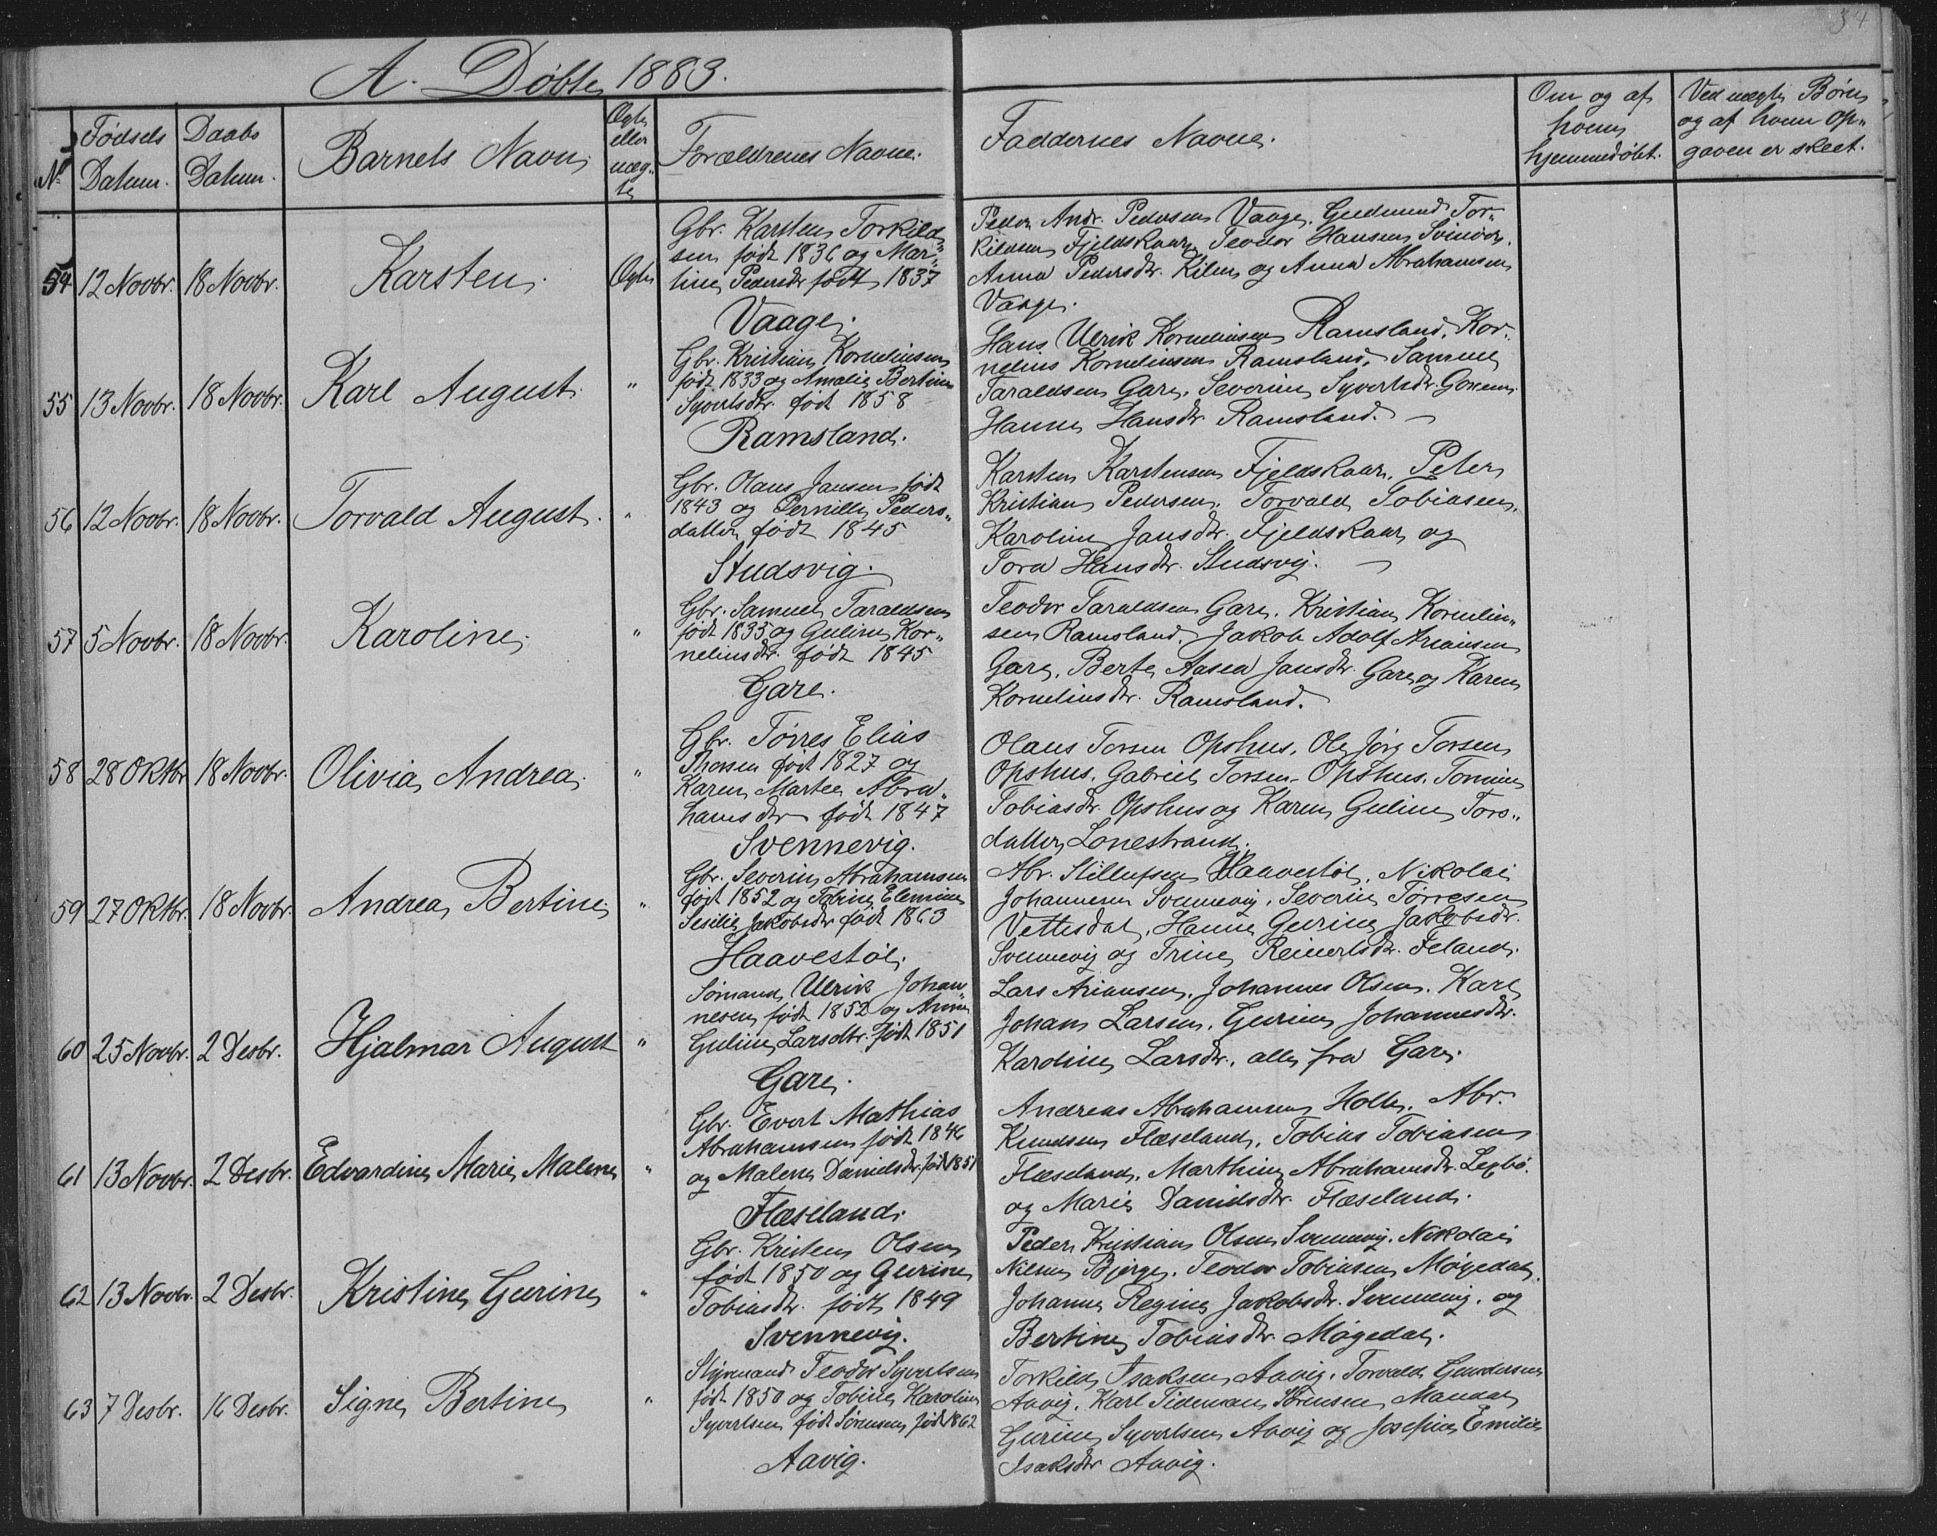 34
A. Døbte 1883.
No
Fødsels Datum.
Daabs Datum.
Barnets Navn
Ægte eller uæg- te
Forældrenes Navne.
Faddernes Navne.
Om og af hvem hjemmedøbt.
Ved uægte Børn og af hvem Op- gaven er skeet.
54 12 Novbr. 18 Novbr. Karsten. Ægte
Gbr. Karsten Torkild-
sen født 1836 og Mar-
tine Pedersdtr født 1837
Vaage.
Peder Andr. Pedersen Vaage, Gudmund Tor-
kildsen Fjeldskaar, Teodor Hansen Svinør,
Anna Pedersdtr. Kilen og Anna Abrahamsen
Vaage.
55 13 Novbr. 18 Novbr. Karl August. "
Gbr. Kristian Korneliusen
født 1833 og Amalie Bertine
Syvertsdtr. født 1858
Ramsland.
Hans Ulrik Korneliusen Ramsland, Kor-
nelius Korneliusen Ramsland, Samuel
Taraldsen Gare, Severine Syvertsdtr.
Hanne Hansdtr Ramsland. —
56 12 Novbr. 18 Novbr. Torvald August. "
Gbr. Olaus Jansen født
1843 og Pernille Peders-
datter født 1845
Studsvig.
Karsten Karstensen Fjeldskaar, Peter
Kristian Pedersen, Torvald Tobiasen,
Karoline Jansdtr. Fjeldskaar og
Tora Hansdtr. Studsvig. —
57 5 Novbr. 18 Novbr. Karoline. "
Gbr. Samuel Taraldsen
født 1835 og Guline Kor-
neliusdtr. født 1845
Gare.
Teodor Taraldsen Gare, Kristian Kornelius-
sen Ramsland, Jakob Adolf Ariansen
Gare, Berte Aasea Jansdtr. Gare og Karen
Korneliusdtr. Ramsland.
58 28 Oktbr 18 Novbr. Olivia Andrea. "
Gbr. Tørres Elias
Thorsen født 1827 og
Karen Martea Abra-
hamsdtr født 1847
Svennevig.
Olaus Torsen Opshus, Ole Jørg Torsen
Opshus, Gabriel Torsen Opshus, Tomine
Tobiasdtr. Opshus og Karen Guline Tors-
datter Lonestrand.
59 27 Oktbr. 18 Novbr. Andrea Bertine "
Gbr. Severin Abrahamsen
født 1852 og Tobine Elemine
Sesilie Jakobsdtr født 1863
Haavestøl.
Abr. Stillufsen Haavestøl, Nikolai
Johannesen Svennevig, Severin Tørresen
Vettesdal, Hanne Gurine Jakobsdtr.
Svennevig og Trine Reinertsdtr. Feland.
60 25 Novbr. 2 Desbr. Hjalmar August "
Sømand Ulrik Johan-
nesen født 1852 og Anne
Guline Larsdtr. født 1851
Gare.
Lars Ariansen, Johannes Olsen, Karl
Johan Larsen, Gurine Johannesdtr.
Karoline Larsdtr., alle fra Gare.
61 13 Novbr. 2 Desbr. Edvardine Marie Malene "
Gbr. Evert Mathias
Abrahamsen født 1846
og Malene Danielsdtr. født 1851
Flæseland.
Andreas Abrahamsen Holte, Abr.
Knudsen Flæseland, Tobias Tobiasen
Flæseland, Marthine Abrahamsdtr.
og Marie Danielsdtr. Flæseland.
62 13 Novbr. 2 Desbr. Kristine Gurine "
Gbr. Kristen Olsen
født 1850 og Gurine
Tobiasdtr. født 1849
Svennevig.
Peder Kristian Olsen Svennevig, Nikolai
Nilsen Bjerge, Teodor Tobiasen Møgedal,
Johanne Regine Jakobsdtr. Svennevig, og
Bertine Tobiasdtr. Møgedal.
63 7 Desbr. 16 Desbr. Signe Bertine "
Styrmand Teodor Syvertsen
født 1850 og Tobine Karoline
Syvertsen født Sørensen, født 1862
Aavig.
Torkild Isaksen Aavig, Torvald Gundersen
Aavig, Karl Tideman Sørensen Mandal
Gurine Syvertsen Aavig og Josefine Emilie
Isaksdtr Aavig.